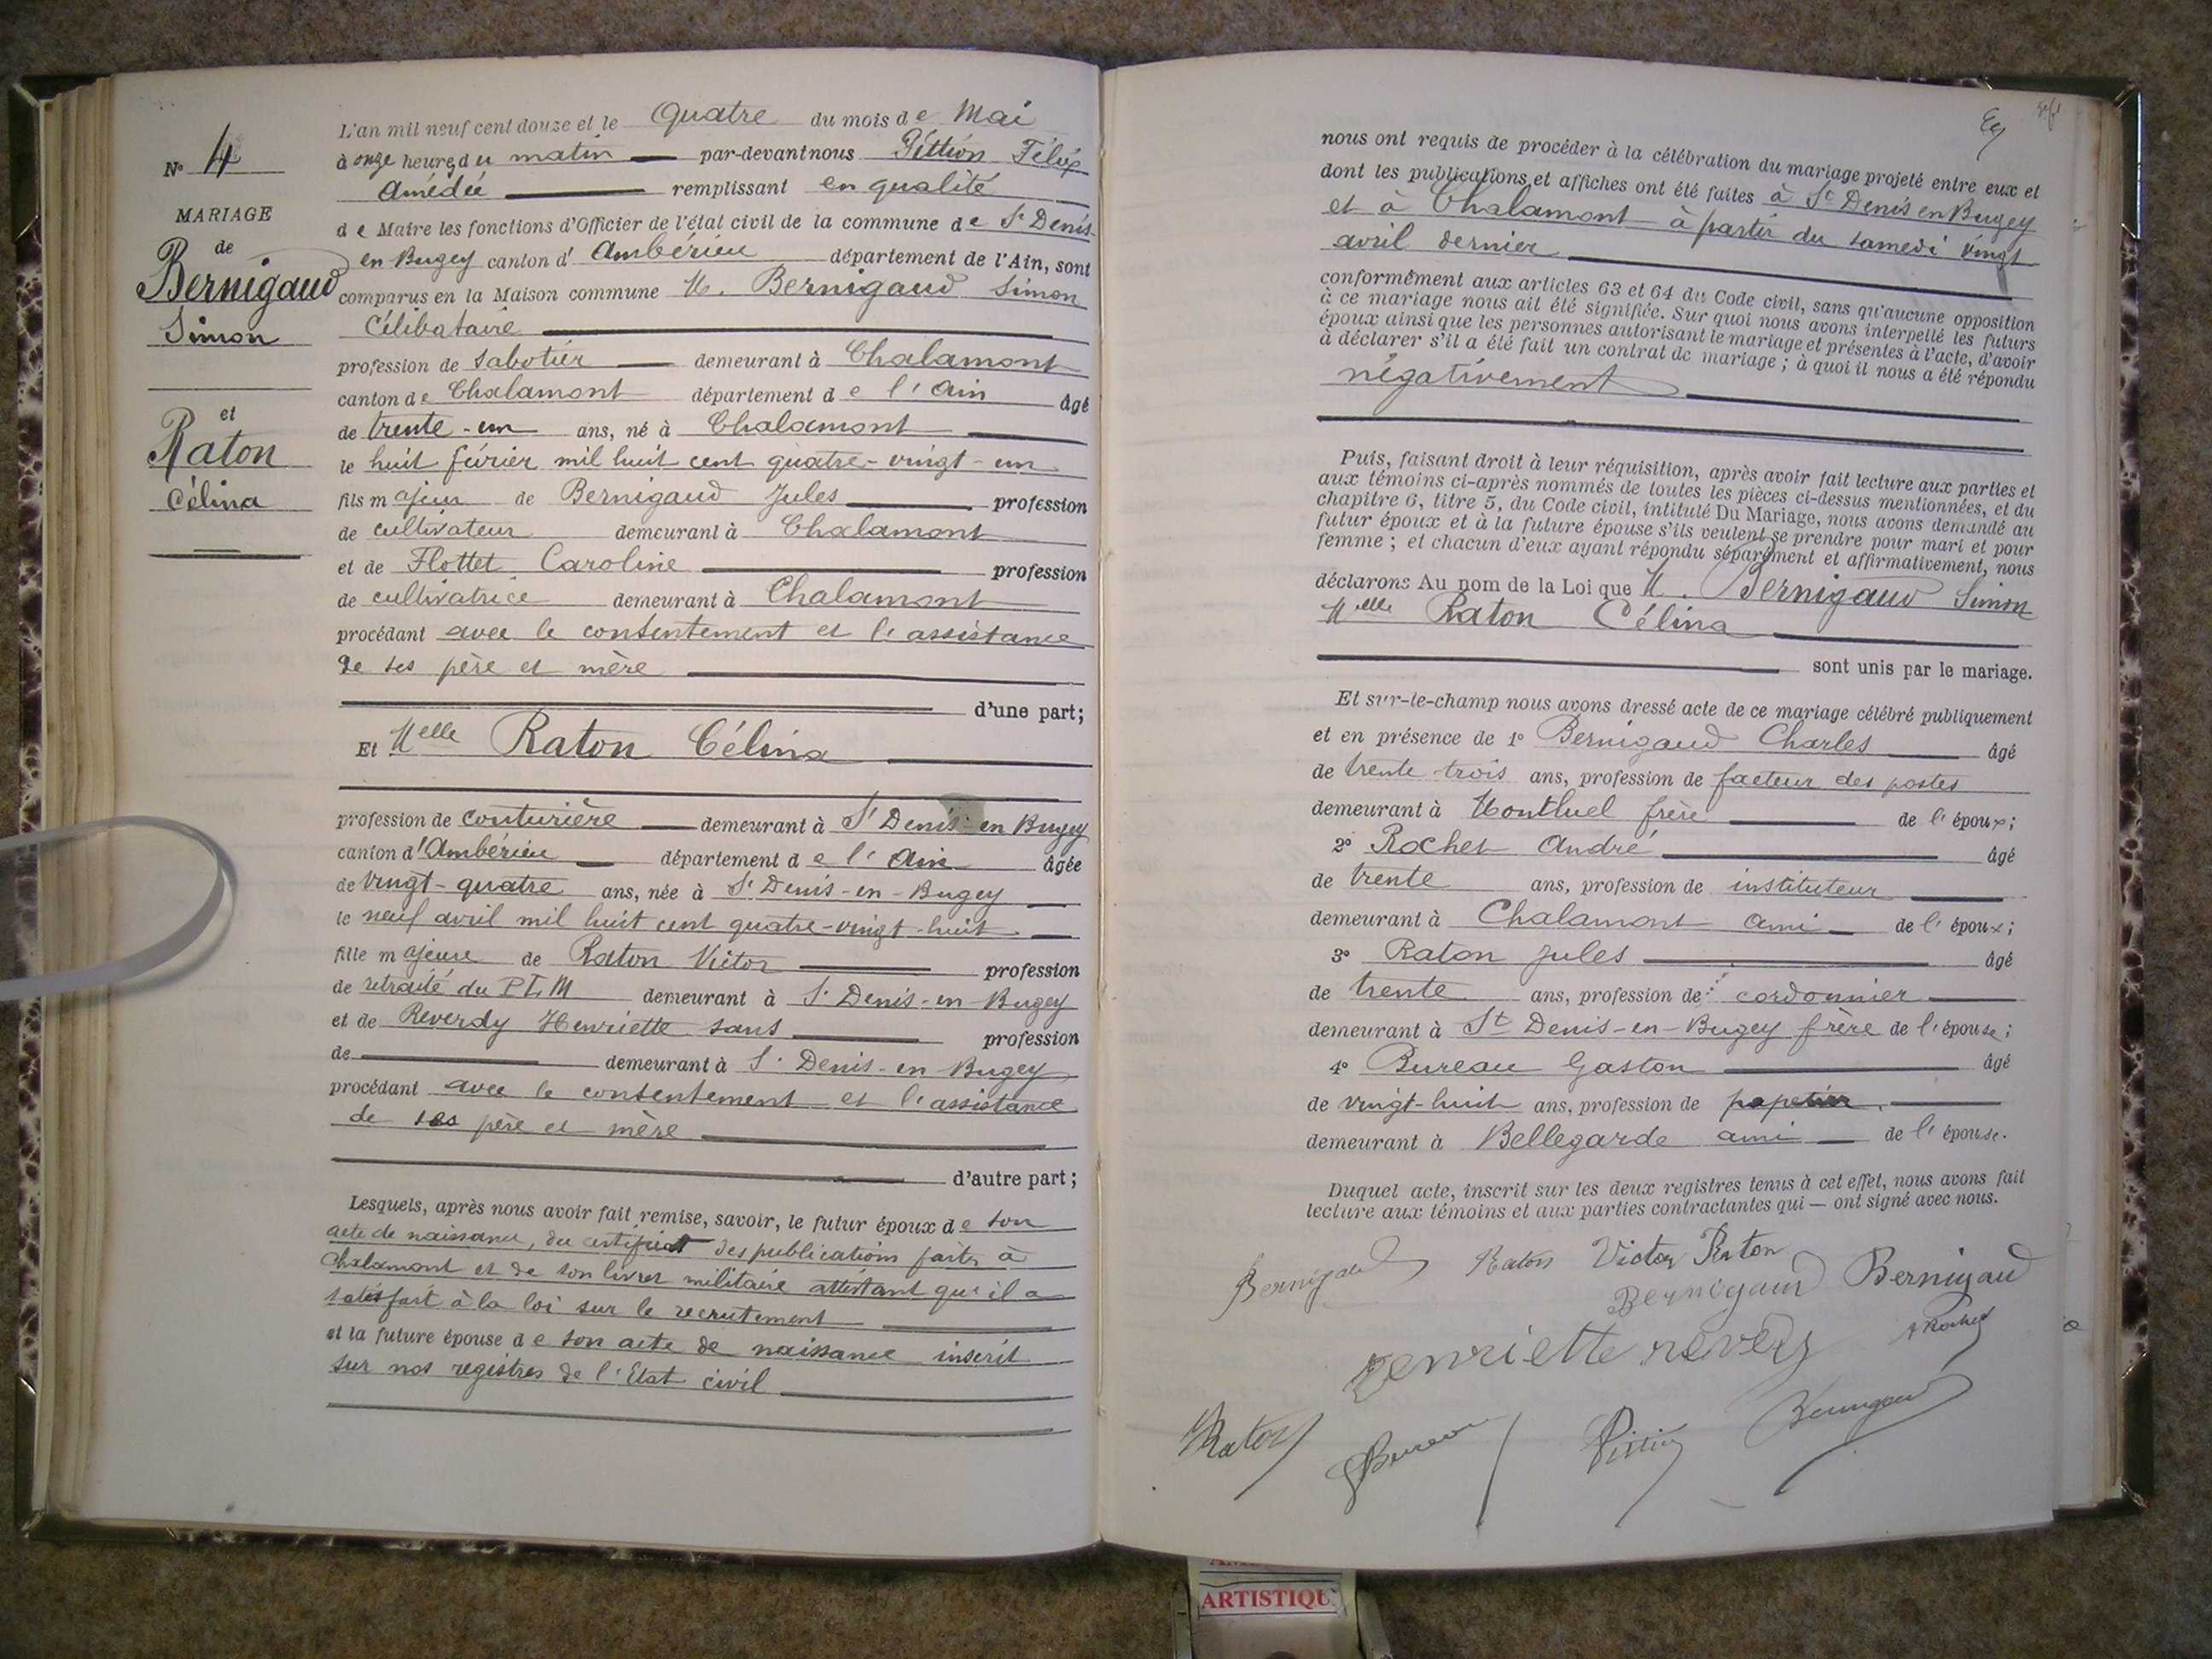 N° 4
MARIAGE
de
Bernigaud
Simon
et
Raton
Célina
L'an mil neuf cent douze et le Quatre du mois de Mai
à onze heures du matin par-devant nous Pittion Félix
Amédée remplissant en qualité
de Maire les fonctions d'Officier de l'état civil de la commune de St Denis
en Bugey canton d' Ambérieu département de l'Ain, sont
comparus en la Maison commune M. Bernigaud Simon
Célibataire
profession de sabotier demeurant à Chalamont
canton de Chalamont département de l'Ain âgé
de trente-un ans, né à Chalamont
le huit février mil huit cent quatre-vingt-un
fils majeur de Bernigaud Jules profession
de cultivateur demeurant à Chalamont
et de Flottet Caroline profession
de cultivatrice demeurant à Chalamont
procédant avec le consentement et l'assistance
de ses père et mère
d'une part;
Et Melle Raton Célina
profession de couturière demeurant à St Denis-en Bugey
canton d'Ambérieu département de l'Ain âgée
de vingt-quatre ans, née à St Denis-en-Bugey
le neuf avril mil huit cent quatre-vingt-huit
fille majeure de Raton Victor profession
de retraité du PLM demeurant à St Denis-en-Bugey
et de Reverdy Henriette sans profession
de demeurant à St Denis-en-Bugey
procédant avec le consentement et l'assistance
de ses père et mère
d'autre part;
Lesquels, après nous avoir fait remise, savoir, le futur époux de son
acte de naissance, du certificat des publications faites à
Chalamont et de son livret militaire attestant qu'il a
satisfait à la loi sur le recrutement
et la future épouse de son acte de naissance inscrit
sur nos registres de l'Etat civil
nous ont requis de procéder à la célébration du mariage projeté entre eux et
dont les publications et affiches ont été faites à St Denis en Bugey
et à Chalamont à partir du samedi vingt
avril dernier
conformément aux articles 63 et 64 du Code civil, sans qu'aucune opposition
à ce mariage nous ait été signifiée. Sur quoi nous avons interpellé les futurs
époux ainsi que les personnes autorisant le mariage et présentes à l'acte, d'avoir
à déclarer s'il a été fait un contrat de mariage; à quoi il nous a été répondu
négativement
Puis, faisant droit à leur réquisition, après avoir fait lecture aux parties et
aux témoins ci-après nommés de toutes les pièces ci-dessus mentionnées, et du
chapitre 6, titre 5, du Code civil, intitulé Du Mariage, nous avons demandé au
futur époux et à la future épouse s'ils veulent se prendre pour mari et pour
femme; et chacun d'eux ayant répondu séparément et affirmativement, nous
déclarons Au nom de la Loi que M. Bernigaud Simon
Melle Raton Célina
sont unis par le mariage.
Et sur-le-champ nous avons dressé acte de ce mariage célébré publiquement
et en présence de 1° Bernigaud Charles âgé
de trente trois ans, profession de facteur des postes
demeurant à Montluel frère de l'époux;
2° Rochet André âgé
de trente ans, profession de instituteur
demeurant à Chalamont ami de l'époux;
3° Raton Jules âgé
de trente ans, profession de cordonnier
demeurant à St Denis-en-Bugey frère de l'épouse;
4° Bureau Gaston âgé
de vingt-huit ans, profession de papetier
demeurant à Bellegarde ami de l'épouse.
Duquel acte, inscrit sur les deux registres tenus à cet effet, nous avons fait
lecture aux témoins et aux parties contractantes qui — ont signé avec nous.
Bernigaud Raton Victor Raton
Bernigaud Bernigaud
henriette reverdy A Rochet
Raton GBureau Pittion Bernigaud
ARTISTIQU